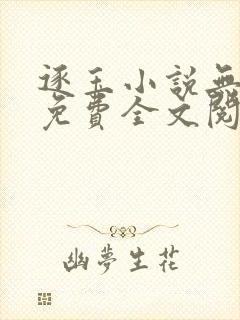 逐玉小說無
免費全文閱
幽夢生花